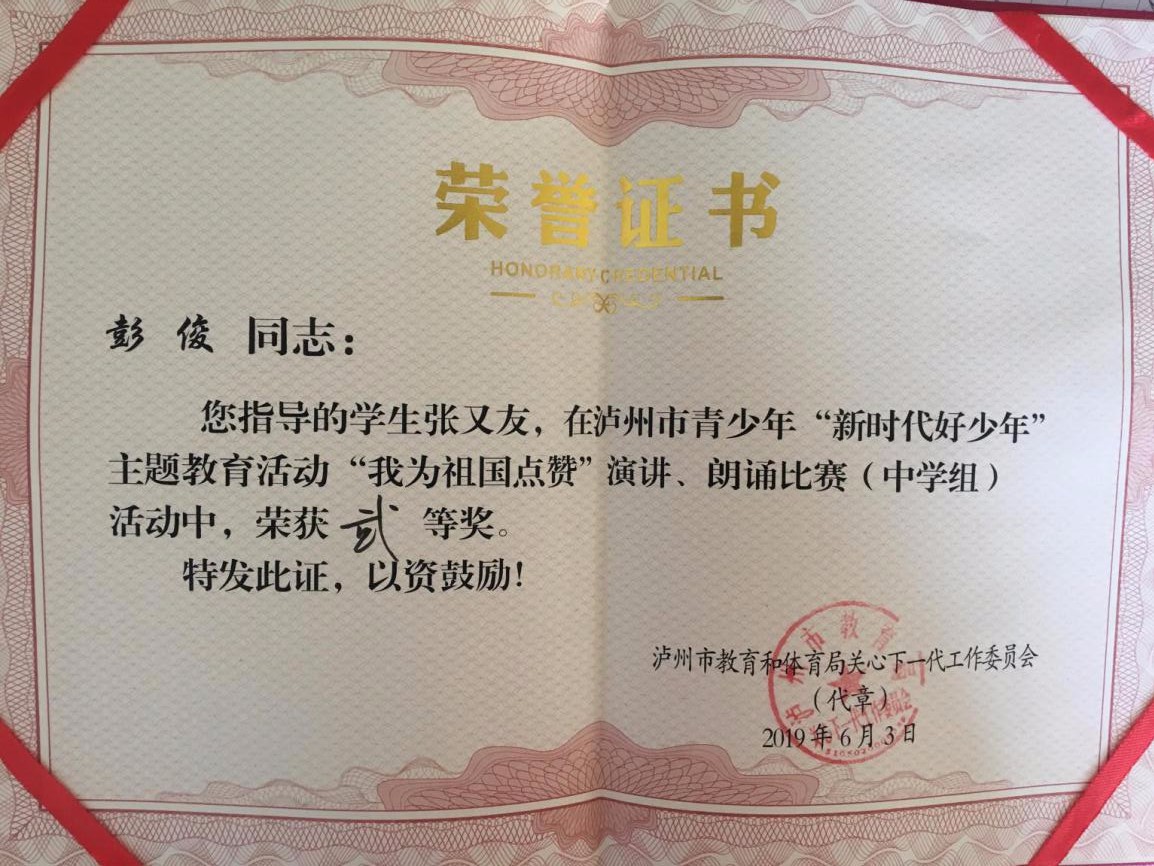 荣誉证书
HONORARY CREDENTIAL
彭 俊 同志：
您指导的学生张又友，在泸州市青少年“新时代好少年”
主题教育活动“我为祖国点赞”演讲、朗诵比赛（中学组）
活动中，荣获 贰 等奖。
特发此证，以资鼓励！
泸州市教育和体育局关心下一代工作委员会
（代章）
2019年6月3日